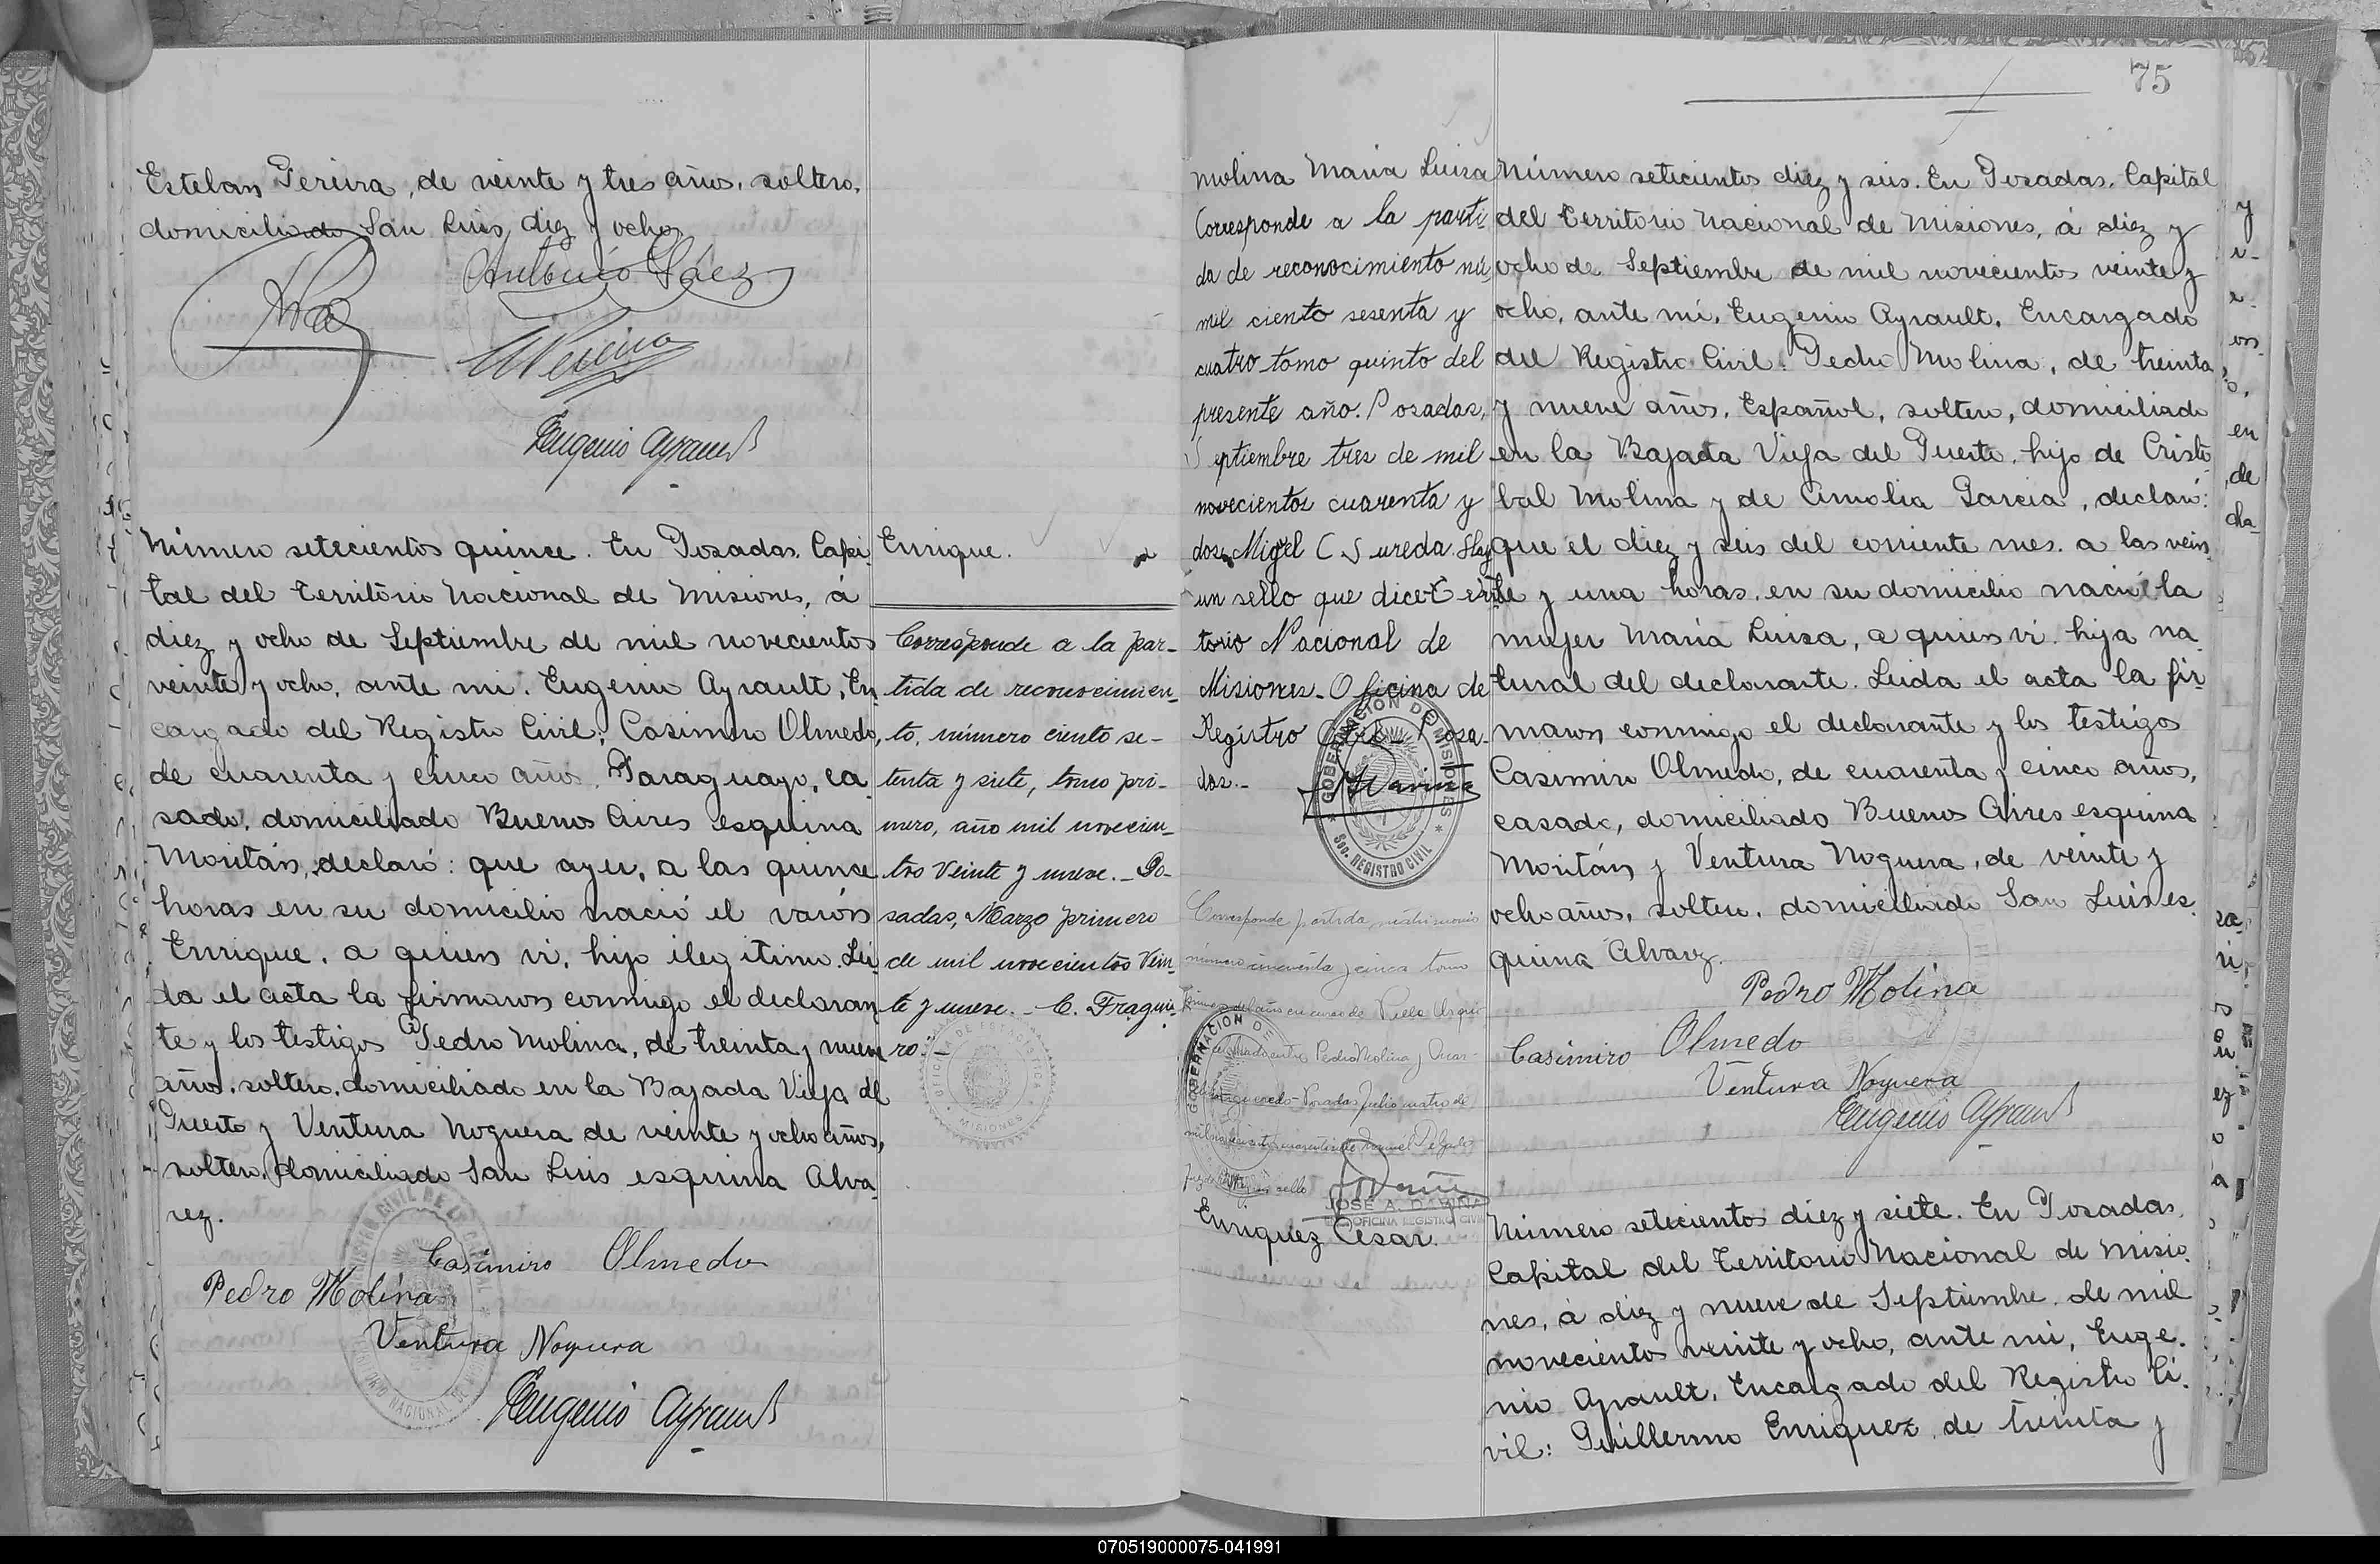 Esteban Pereira, de veinte y tres años, soltero,
domiciliado San Luis diez y ocho
Antonio Báez
Eugenio Ayrault
Número setecientos quince. En Posadas, Capi
tal del Territorio Nacional de Misiones, á
diez y ocho de Septiembre de mil novecientos
veinte y ocho, ante mi, Eugenio Ayrault, En
cargado del Registro Civil; Casimiro Olmedo,
de cuarenta y cinco años, Paraguayo, ca
sado, domiciliado Buenos Aires esquina
Moritán, declaró: que ayer, a las quince
horas en su domicilio nació el varón
Enrique, a quien vi, hijo ilegitimo. Lei
da el acta la firmaron conmigo el declaran
te y los testigos Pedro Molina, de treinta y nueve
años, soltero, domiciliado en la Bajada Vieja del
Puerto y Ventura Noguera de veinte y ocho años,
soltero, domiciliado San Luis esquina Alva
rez.
Casimiro Olmedo
Pedro Molina
Ventura Noguera
Eugenio Ayrault
Enrique.
Corresponde a la par-
tida de reconocimien-
to, número ciento se-
tenta y siete, tomo pri-
mero, año mil novecien-
tos veinte y nueve. - Po-
sadas, Marzo primero
de mil novecientos vein-
te y nueve. - C. Fraguei-
ro. -
75
Molina Maria Luisa
Corresponde a la parti-
da de reconocimiento nú
mil ciento sesenta y
cuatro tomo quinto del
presente año. Posadas,
Septiembre tres de mil
novecientos cuarenta y
dos. Migel C Sureda. Hay
un sello que dice: Terri
torio Nacional de
Misiones - Oficina de
Registro Civil - Posa-
das. -
GOBERNACION DE MISIONES
SEC. REGISTRO CIVIL
Corresponde partida matrimonio
número cincuenta y cinco tomo
Pedro Molina y
Posadas Julio cuatro de
JOSE A. DAVIÑA
OFICINA REGISTRO CIVIL
Enriquez Cesar.
Número setecientos diez y seis. En Posadas, Capital
del Territorio Nacional de Misiones, á diez y
ocho de Septiembre de mil novecientos veinte y
ocho, ante mi, Eugenio Ayrault, Encargado
del Registro Civil: Pedro Molina, de treinta
y nueve años, Español, soltero, domiciliado
en la Bajada Vieja del Puerto, hijo de Cristo
bal Molina y de Amalia Garcia, declaró:
que el diez y seis del corriente mes, a las vein
te y una horas, en su domicilio nació la
mujer Maria Luisa, a quien vi, hija na
tural del declarante. Leida el acta la fir
maron conmigo el declarante y los testigos
Casimiro Olmedo, de cuarenta y cinco años,
casado, domiciliado Buenos Aires esquina
Moritán y Ventura Noguera, de veinte y
ocho años, soltero, domiciliado San Luis es
quina Alvarez.
Pedro Molina
Casimiro Olmedo
Ventura Noguera
Eugenio Ayrault
Número setecientos diez y siete. En Posadas,
Capital del Territorio Nacional de Misio
nes, á diez y nueve de Septiembre de mil
novecientos veinte y ocho, ante mi, Euge
nio Ayrault, Encargado del Registro Ci
vil: Guillermo Enriquez, de treinta y
070519000075-041991